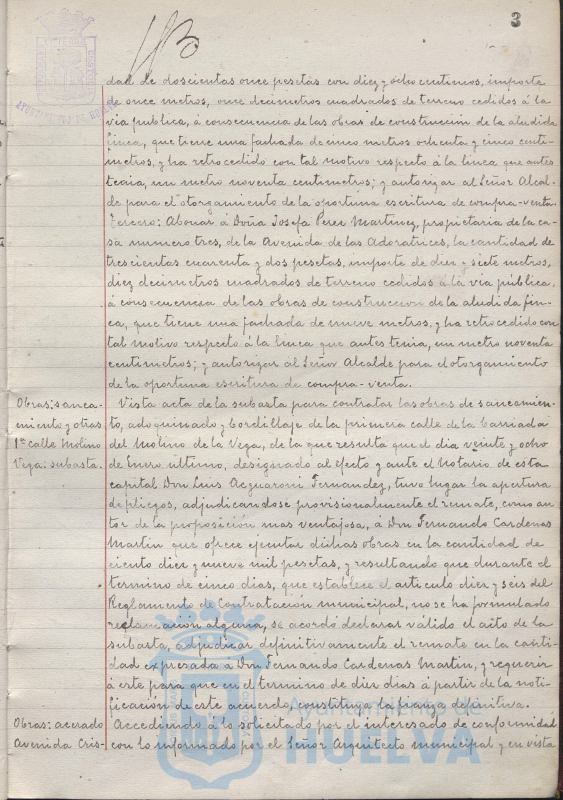 3
dad de doscientas once pesetas con diez y ocho centimos, importe
de once metros, once decimetros cuadrados de terreno cedidos á la
via publica, á consecuencia de las obras de construcción de la aludida
finca, que tiene una fachada de cinco metros ochenta y cinco centi-
metros, y ha retrocedido con tal motivo respecto á la linea que antes
tenia, un metro noventa centimetros; y autorizar al Señor Alcal-
de para el otorgamiento de la oportuna escritura de compra-venta.
Tercero: Abonar á Doña Josefa Perez Martinez, propietaria de la ca-
sa numero tres, de la Avenida de las Adoratrices, la cantidad de
trescientas cuarenta y dos pesetas, importe de diez y siete metros,
diez decimetros cuadrados de terreno cedidos á la via pública,
á consecuencia de las obras de construccion de la aludida fin-
ca, que tiene una fachada de nueve metros, y ha retrocedido con
tal motivo respecto á la linea que antes tenia, un metro noventa
centimetros; y autorizar al Señor Alcalde para el otorgamiento
de la oportuna escritura de compra-venta.
Obras: sanea-
miento y otras
1ª calle Molino
Vega: subasta.
Vista acta de la subasta para contratar las obras de saneamien-
to, adoquinado y bordillaje de la primera calle de la barriada
del Molino de la Vega, de la que resulta que el dia veinte y ocho
de Enero último, designado al efecto y ante el Notario de esta
capital Don Luis Acquaroni Fernandez, tuvo lugar la apertura
de pliegos, adjudicandose provisionalmente el remate, como au-
tor de la proposición mas ventajosa, á Don Fernando Cardenas
Martin que ofrece ejecutar dichas obras en la cantidad de
ciento diez y nueve mil pesetas, y resultando que durante el
termino de cinco dias, que establece el articulo diez y seis del
Reglamento de Contratación municipal, no se ha formulado
reclamación alguna, se acordó declarar válido el acto de la
subasta, adjudicar definitivamente el remate en la canti-
dad expresada á Don Fernando Cardenas Martin, y requerir
á este para que en el termino de diez dias á partir de la noti-
ficación de este acuerdo, constituya la fianza definitiva.
Obras: acerado
Avenida Cris-
Accediendo á lo solicitado por el interesado de conformidad
con lo informado por el Señor Arquitecto municipal y en vista
Ayuntamiento de
HUELVA